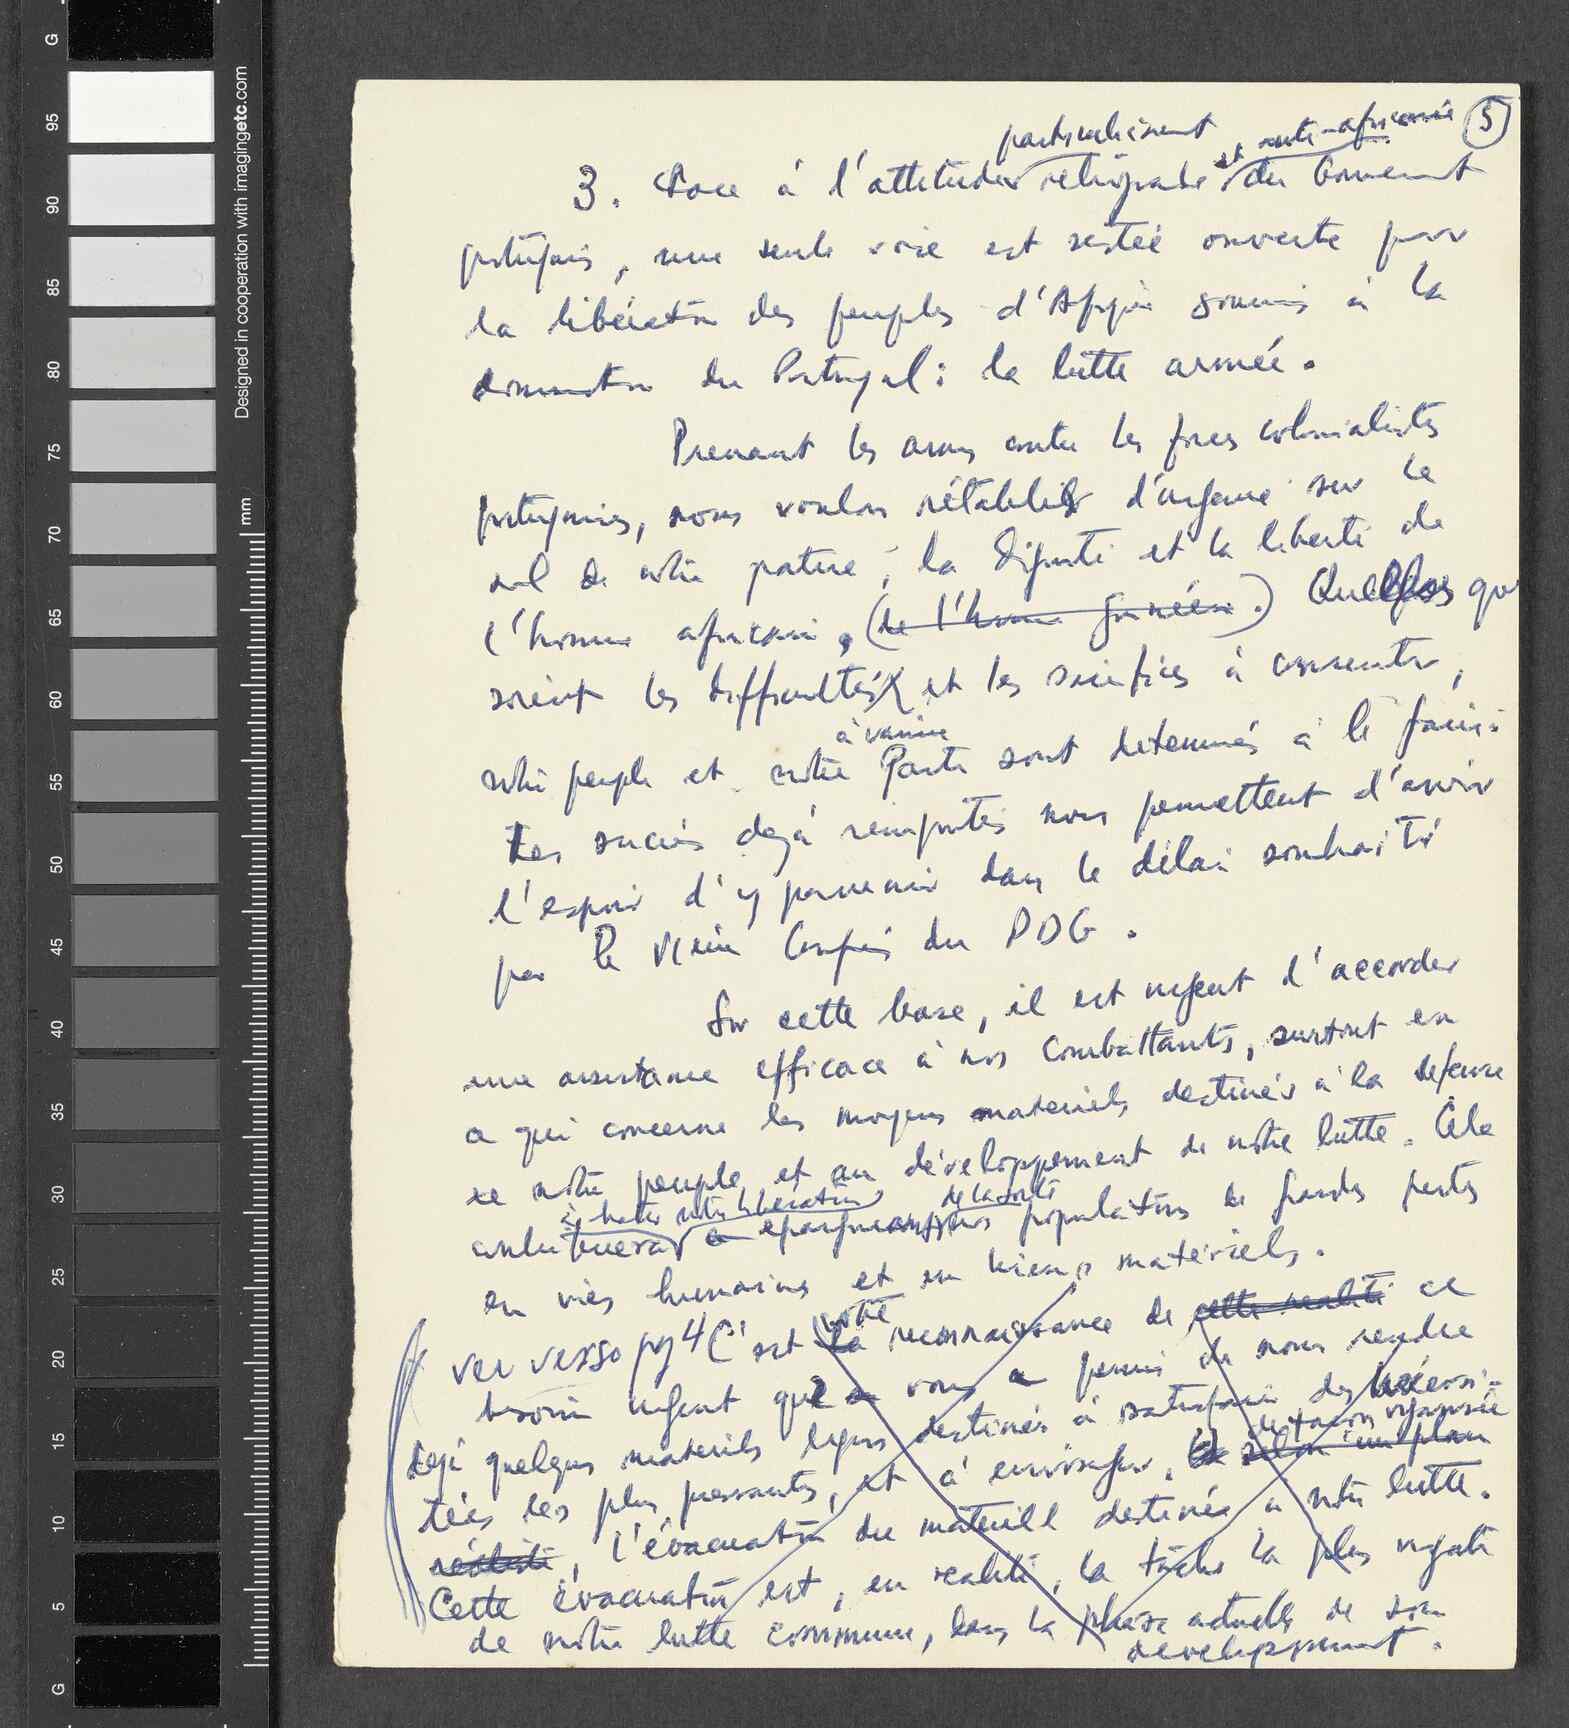 5
particulièrement et anti-africaine
3. Face à l'attitude rétrograde du Gouvernement
portugais, une seule voie est restée ouverte pour
la libération des peuples d'Afrique soumis à la
domination du Portugal : la lutte armée.
Prenant les armes contre les forces colonialistes
portugaises, nous voulons rétablir d'urgence sur le
sol de notre patrie, la dignité et la liberté de
l'homme africain, (de l'homme guinéen.) Quelles que
soient les difficultés à vaincre et les sacrifices à consentir,
notre peuple et notre Parti sont déterminés à le faire.
Les succès dejà remportés nous permettent d'avoir
l'espoir d'y parvenir dans le délai souhaité
par le VIème Congrès du PDG.
Sur cette base, il est urgent d'accorder
une assistance efficace à nos combattants, surtout en
ce qui concerne les moyens materiels destinés à la defense
de notre peuple et au développement de notre lutte. Cela
à hater notre libération de la sorte
contribuera épargner populations de grandes pertes
en vies humaines et en biens materiels.
ver verso pg 4 C'est la votre reconnaissance de cette realité ce
besoin urgent que vous a permis de nous rendre
dejà quelques materiels legers destinés à satisfaire des nécessi-
de façon organisée
tées les plus pressantes, et à envisager, selon un plan
réaliste, l'évacuation du materiell destiné à notre lutte.
Cette évacuation est, en realité, la tâche la plus urgente
de notre lutte commune, dans la phase actuelle de son
developpement.
G
95
90
85
80
75
70
65
60
55
50
45
40
35
30
25
20
15
10
5
G
mm
Designed in cooperation with imagingetc.com